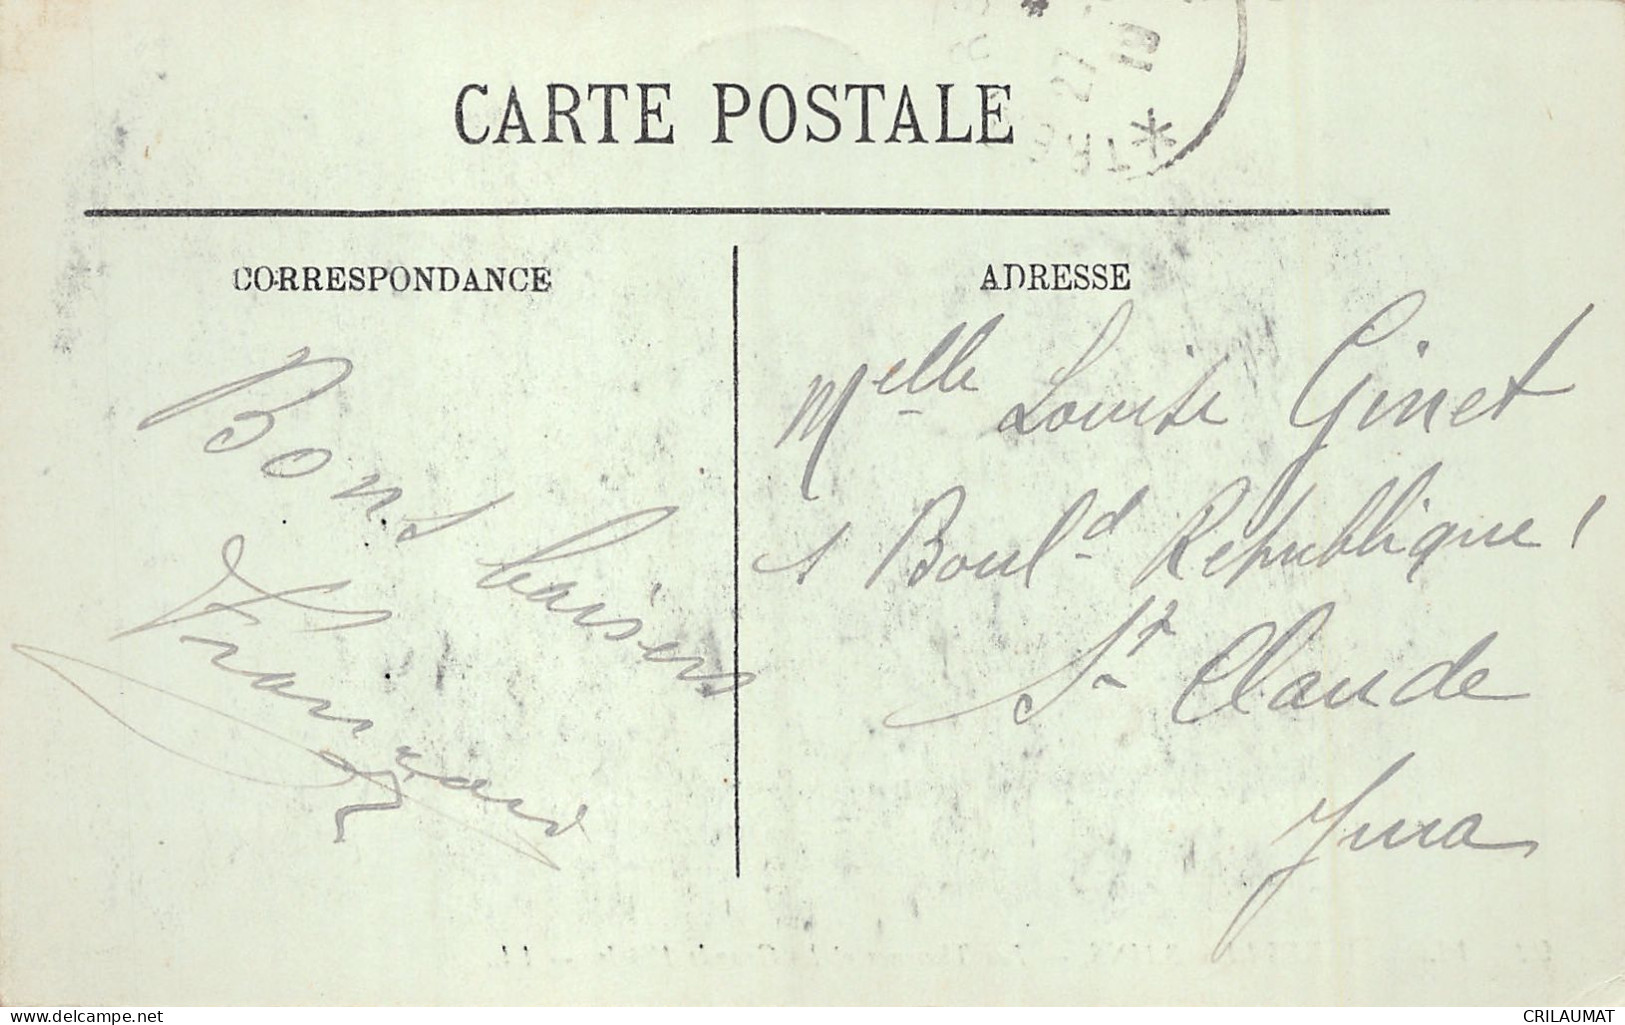 CARTE POSTALE
CORRESPONDANCE
Bons baisers
ADRESSE
Melle Louise Ginet
1 Boul.d Republique 1
St Claude
Jura
www.delcampe.net
CRILAUMAT